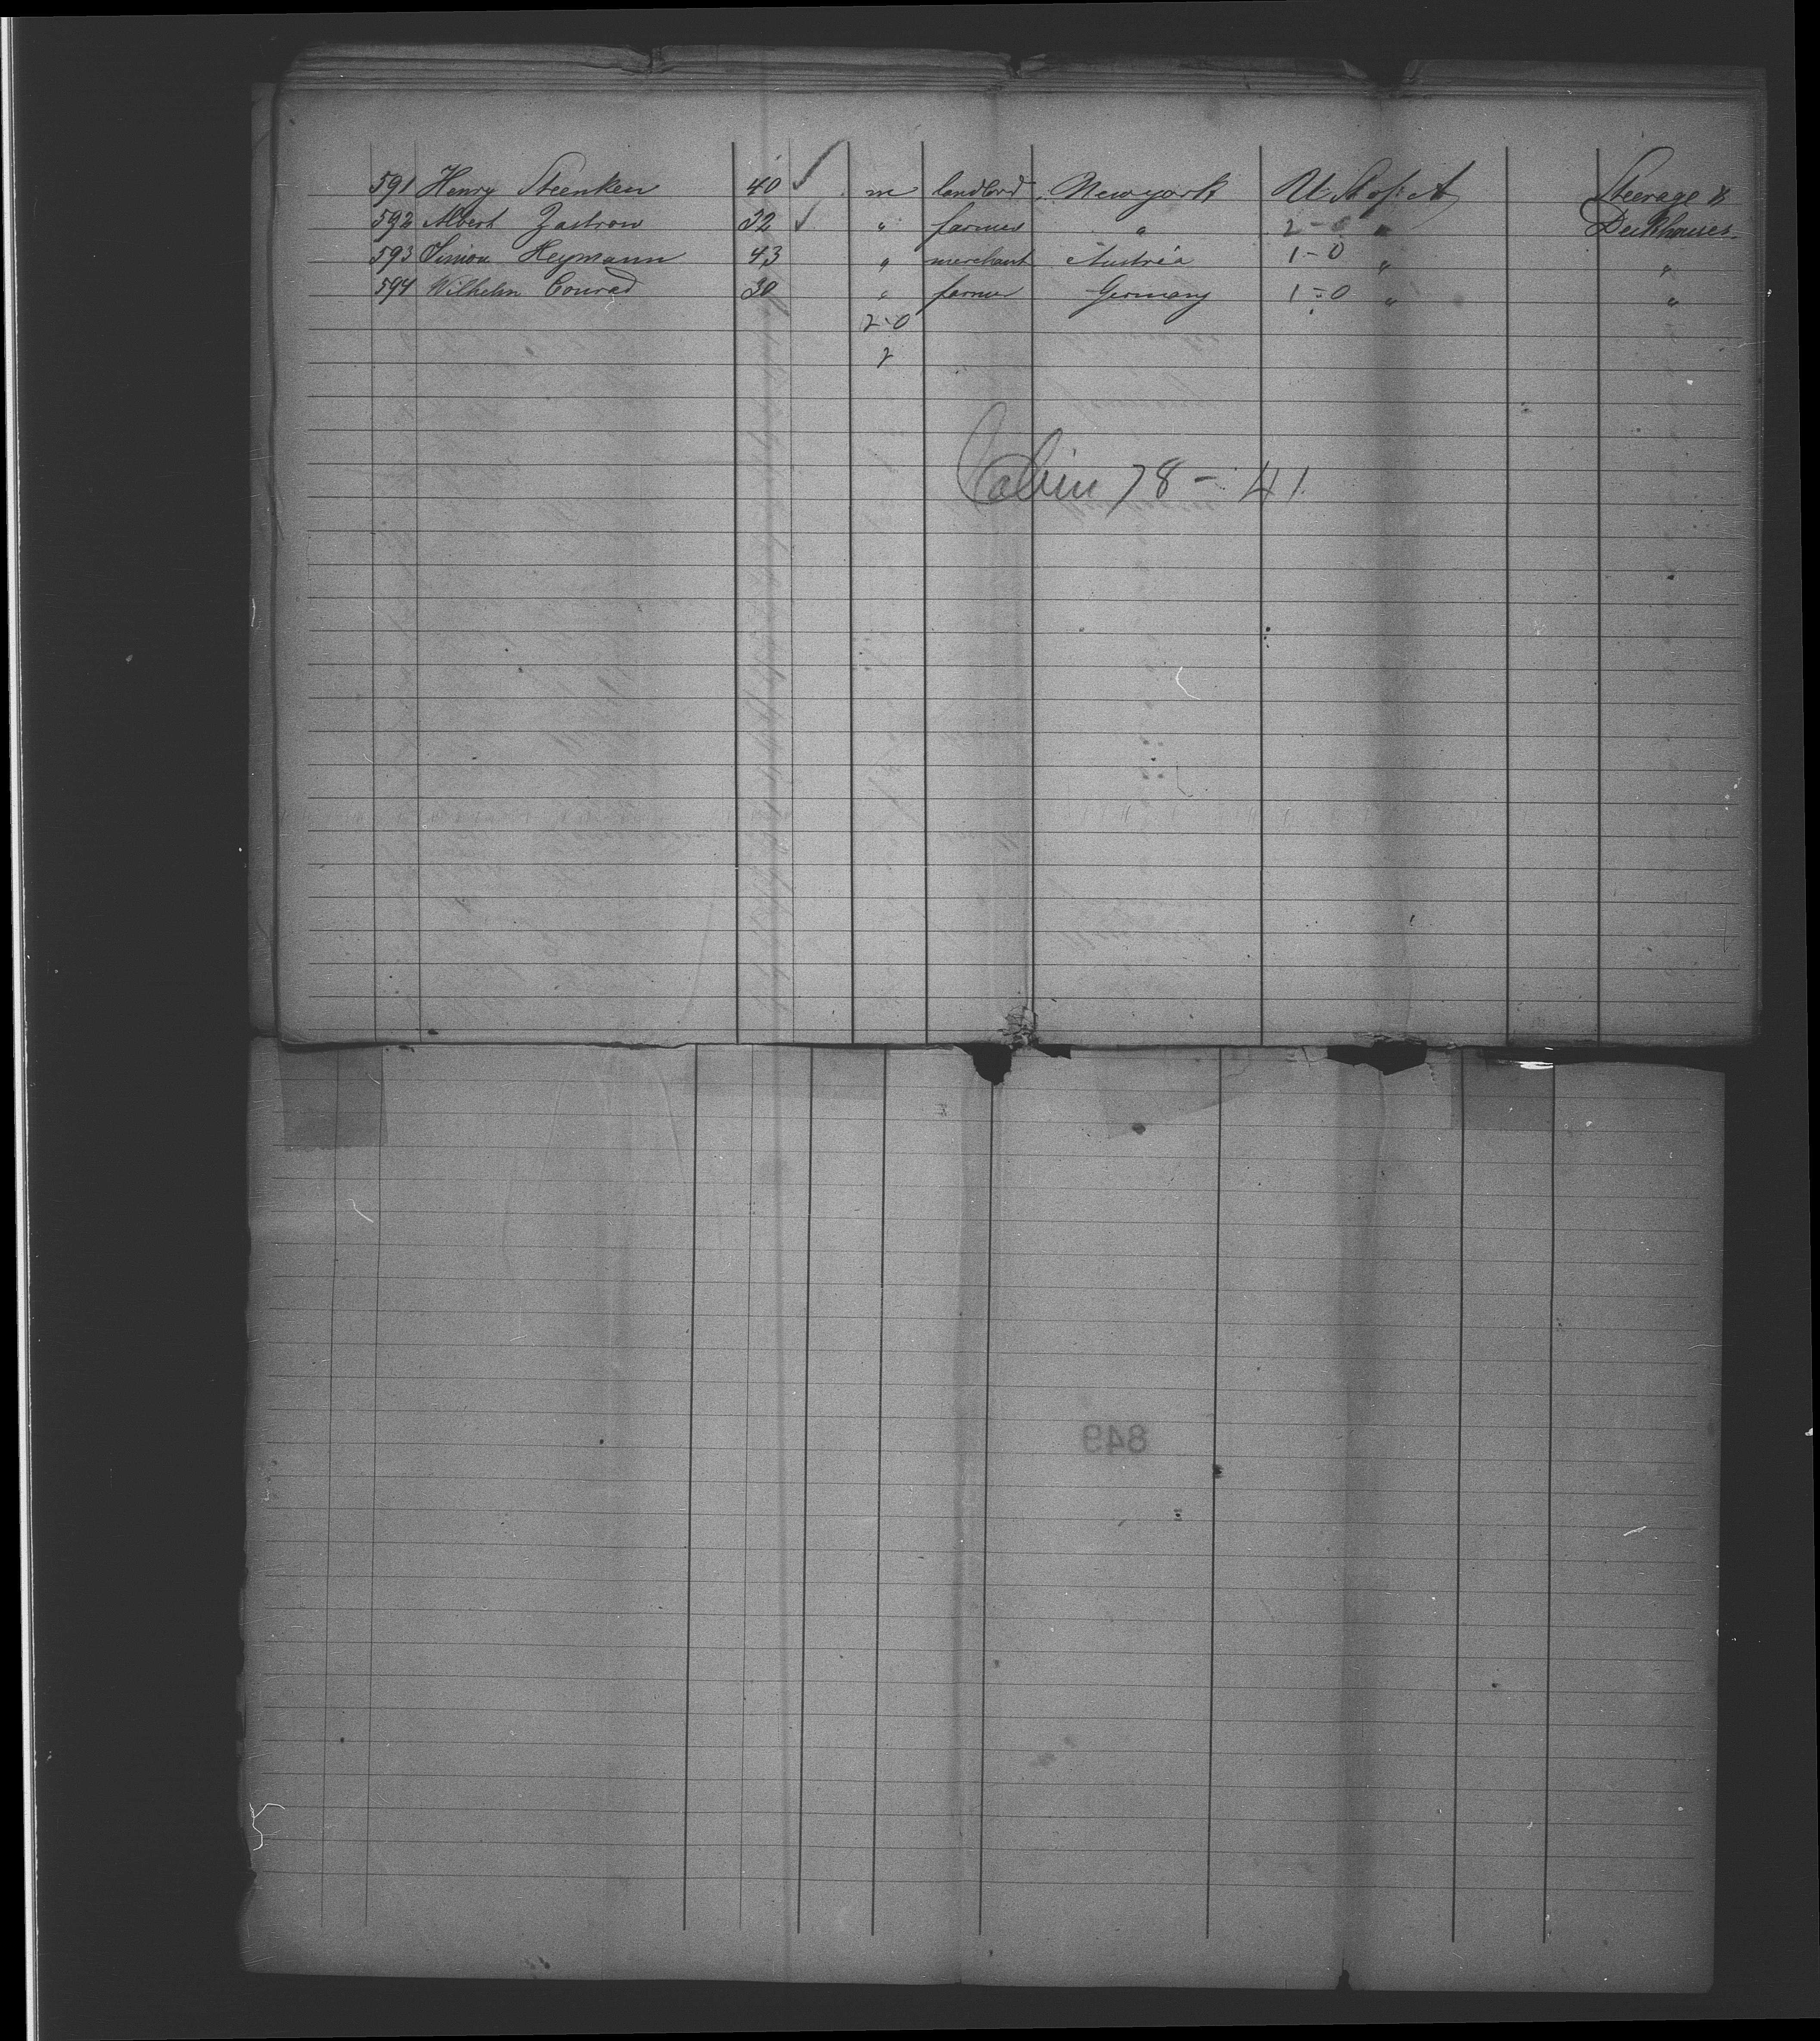 591 Henry Steenken 40 ✓ m landlord Newyork U. St. of A Steerage &
592 Albert Zastrow 32 ✓ " farmer " 2-0 " Deckhouses
593 Simon Heymann 43 " merchant Austria 1-0 " "
594 Wilhelm Conrad 30 " farmer Germany 1-0 " "
2-0
2
Cabin 78-41
849